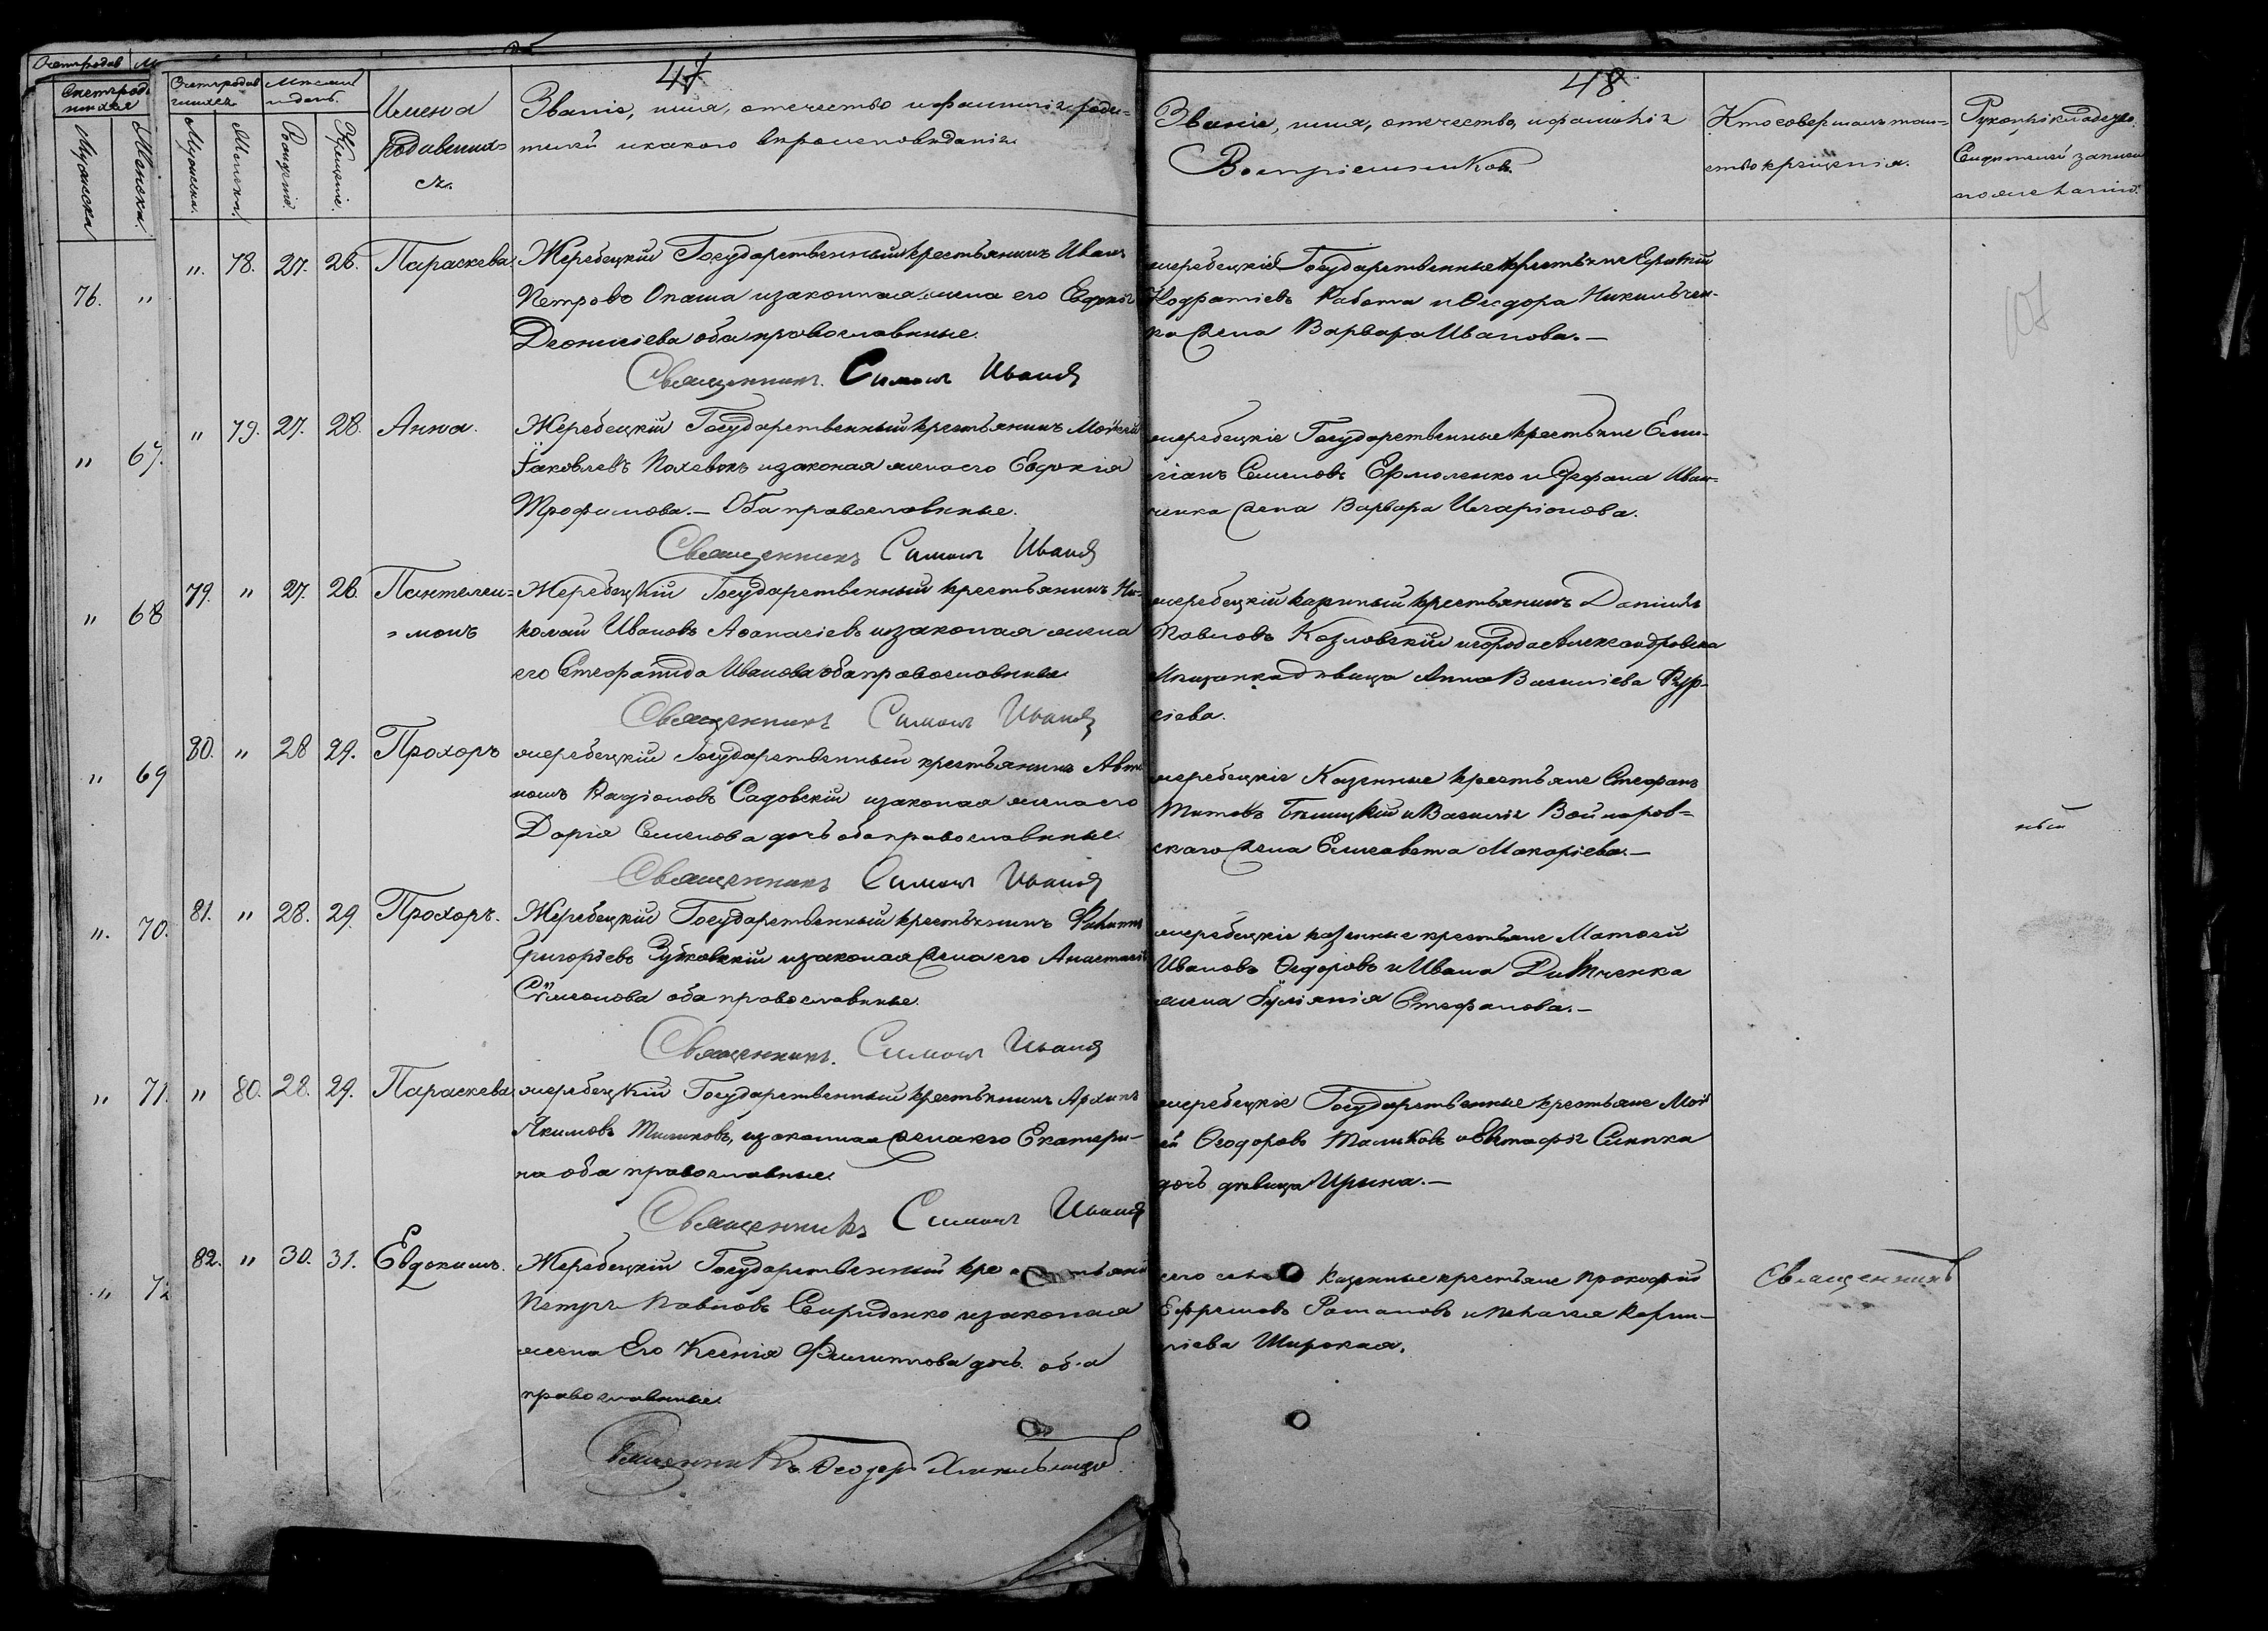 47
48
Счетъ родив
шихся
Мѣсяцъ
и день.
Имена
родивших
ся.
Званіе, имя, отечество и фамилія роди-
телей и какого вѣроисповѣданія
Званіе, имя, отечество, и фамилія
Воспріемниковъ.
Кто совершалъ таин-
ство крещенія.
Рукоприкладство
Свидѣтелей записи
по желанію.
Мужеска.
Женска.
Рожденіе.
Крещеніе.
76. "
" 78. 27. 28. Параскева.
Жеребецкій Государственный крестьянинъ Иванъ
Петровъ Опаша и законная жена его Евдокія
Діонисіева оба православные.
Священникъ Симонъ
жеребецкіе Государственные крестьяне
Работа и Ѳеодора
жена Варвара Иванова.—
" 67.
" 79. 27. 28. Анна.
Жеребецкій Государственный крестьянинъ Моисей
Іаковлевъ и законая жена его Евдокія
Трофимова.— Оба православные.
Священникъ Симонъ
жеребецкіе Государственные крестьяне Еми-
ліанъ Семеновъ Ермоленко и Стефана Иван-
ченка жена Варвара Иларіонова.
" 68
79. " 27. 28. Пантелеи-
монъ
Жеребецкій Государственный крестьянинъ Ни-
колай Ивановъ Аѳанасіевъ и законая жена
его Стефанида Иванова оба православные
Священникъ Симонъ
жеребецкій казенный крестьянинъ Даніилъ
Павловъ Козловскій и города Александровска
Мѣщанка дѣвица Анна Василіева
сіева.
" 69
80. " 28 29. Прохоръ
жеребецкій Государственный крестьянинъ
Радіоновъ Садовскій и законая жена его
Дарія Семенова дочь оба православные.
Священникъ Симонъ
жеребецкіе Казенные крестьяне Стефанъ
Титовъ Бѣлицкій и Василія Войнаров-
скаго жена Елисавета Макаріева.—
ный
". 70.
81. " 28. 29. Прохоръ.
Жеребецкій Государственный крестьянинъ
Григоріевъ Зубковскій и законая жена его Анастасія
Сѵмеонова оба православные.
Священникъ. Симонъ
жеребецкіе казенные крестьяне Матѳей
Ивановъ Ѳедоровъ и Ивана
жена Іуліянія Стефанова.—
" 71.
" 80. 28. 29. Параскева
жеребецкій Государственный крестьянинъ Архипъ
Якимовъ и законная жена его Екатери-
на оба православные.
Священникъ Симонъ
жеребецкіе Государственные крестьяне Мои
ѳй Ѳеодоровъ и Евстафія
дочь дѣвица Ирина.—
" 72
82. " 30. 31. Евдокимъ.
Жеребецкій Государственный
Петръ Павловъ Свириденко и законая
жена Его Ксенія Филиппова дочь оба
православные.
Священникъ Ѳеодоръ
казенные крестьяне Прокофій
Ефремовъ Потаповъ и Пелагія
Широкая.
Священникъ